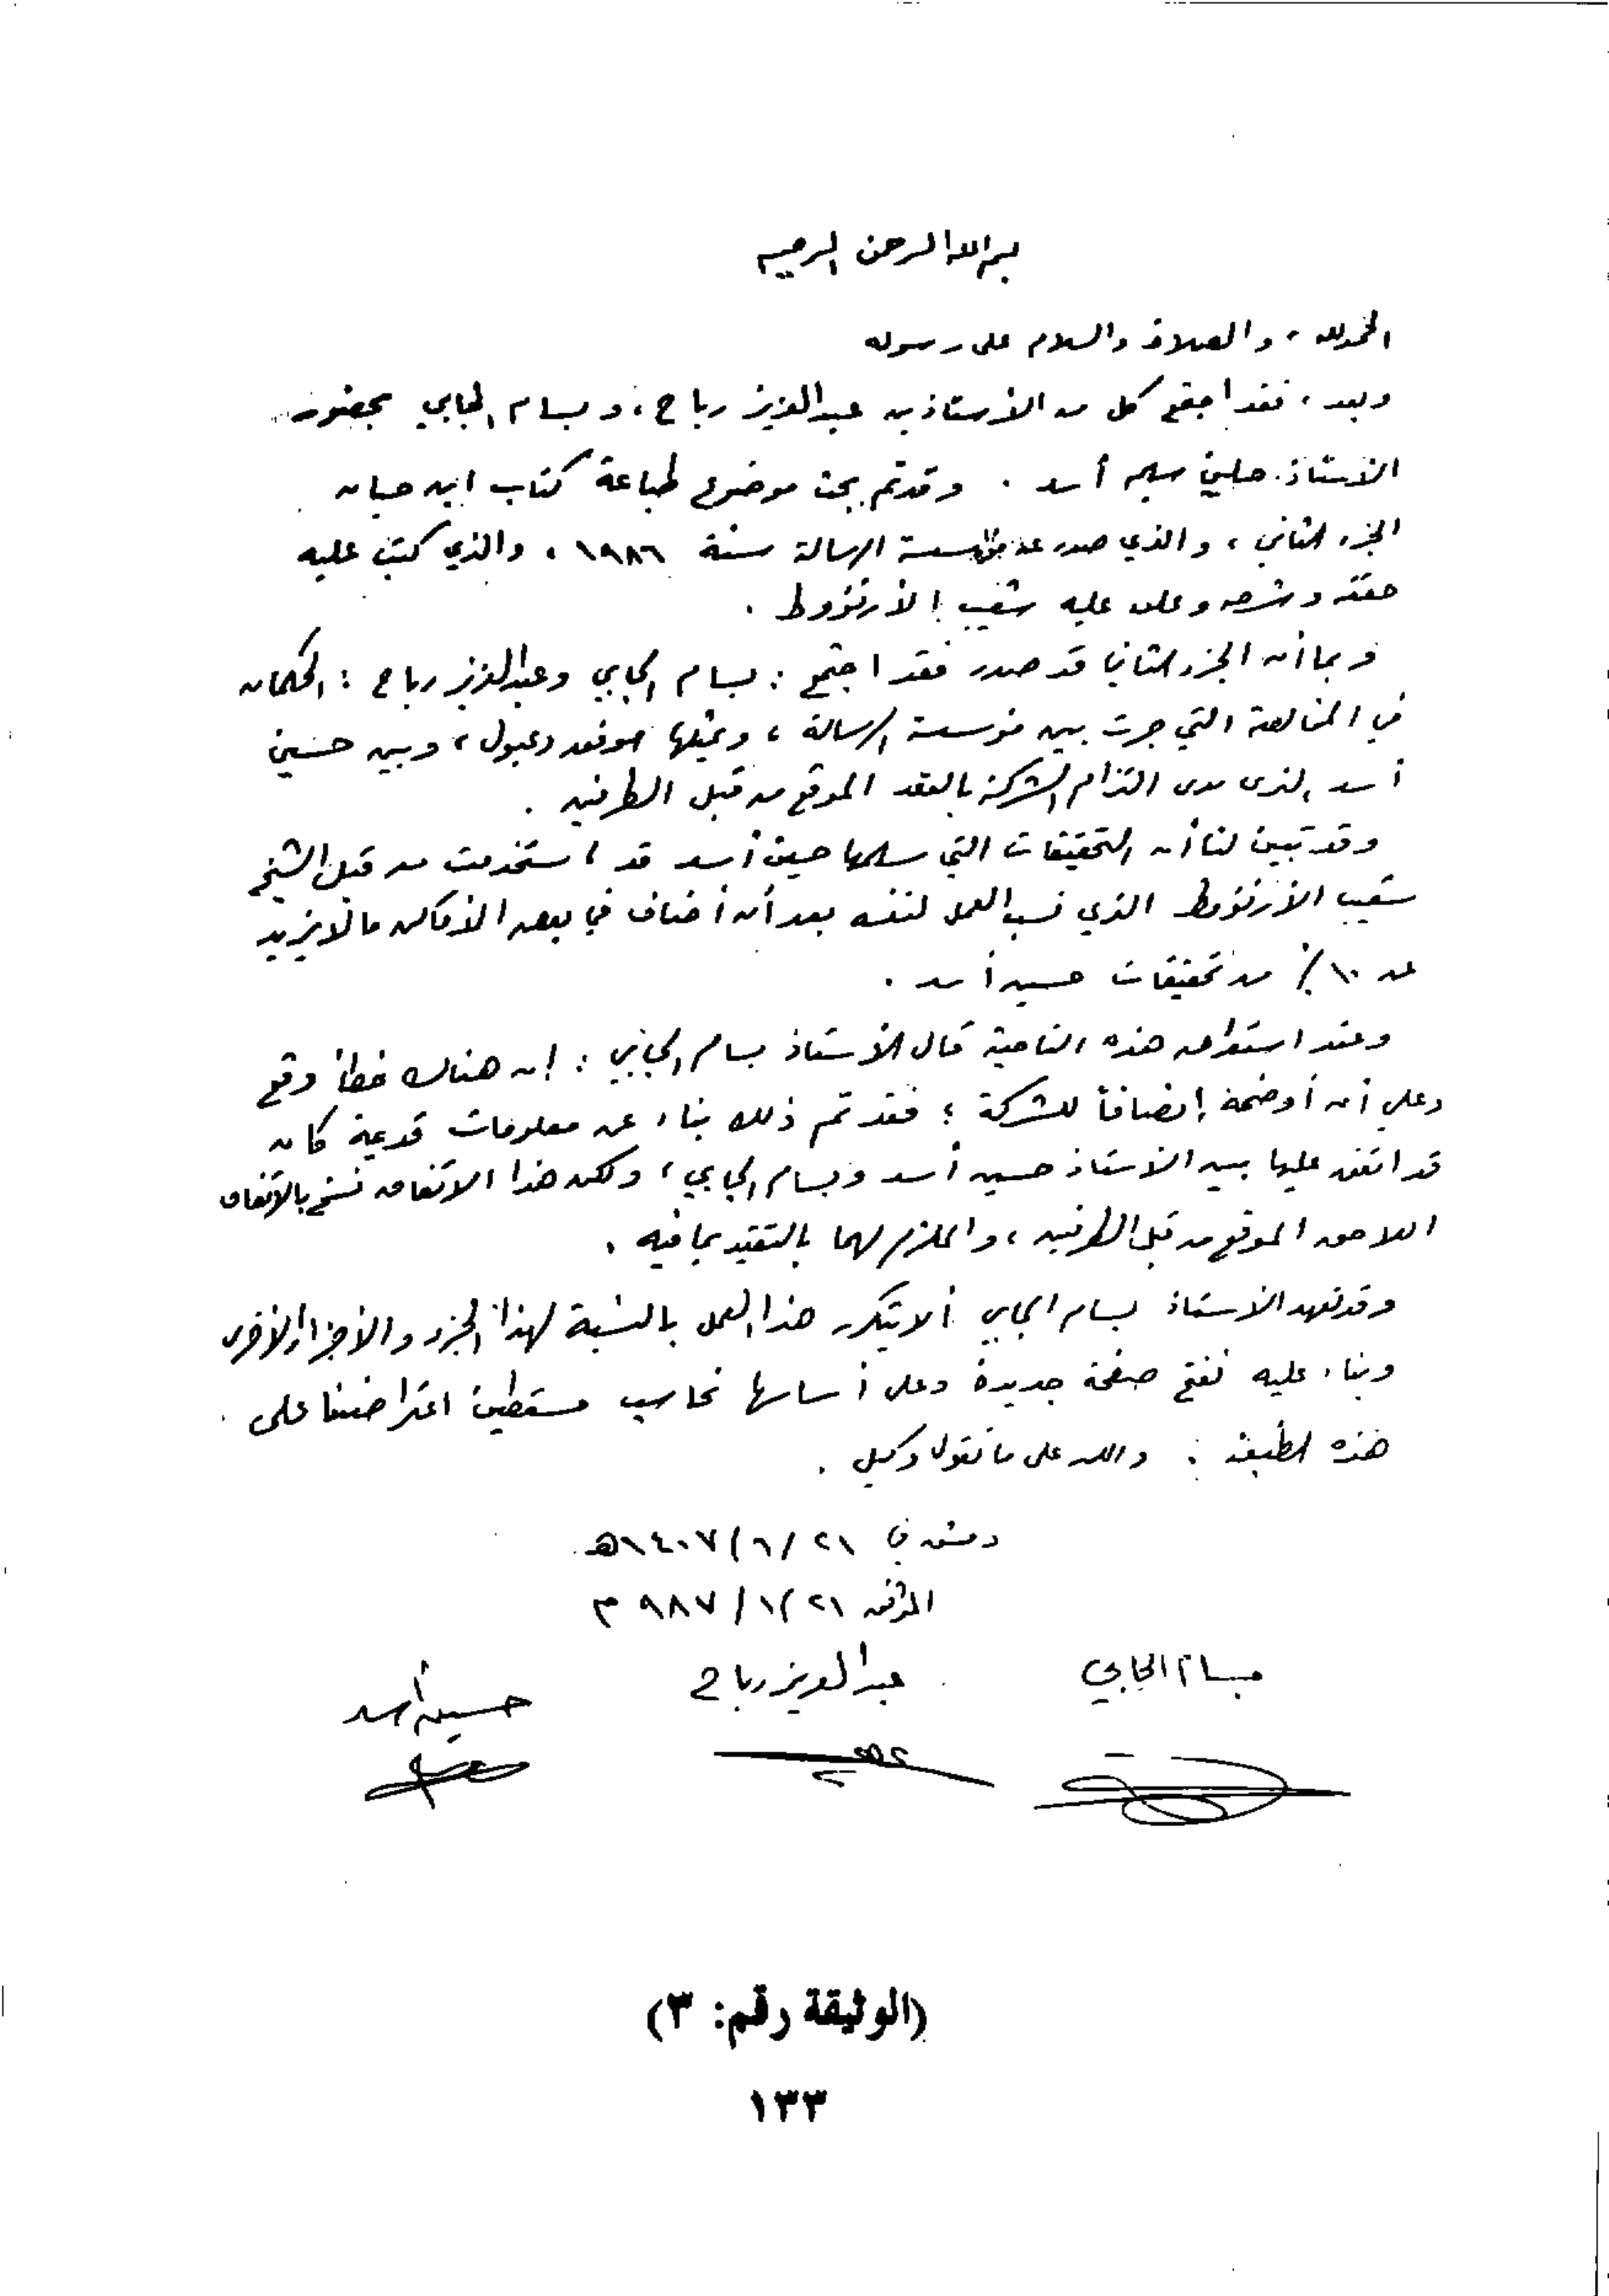 بسم الله الرحمن الرحيم
الحمد لله ، والصلاة والسلام على رسوله
وبعد ، فقد اجتمع كل من الأستاذين عبد العزيز رباح ، وبسام الجابي بحضور
الأستاذ حسين سليم أسد . وقد تم بحث موضوع طباعة كتاب ابن حبان
الجزء الثاني ، والذي صدر عن مؤسسة الرسالة سنة ١٩٨٦ ، والذي كتب عليه
حققه وشرحه وعلق عليه شعيب الأرنؤوط .
وبما أن الجزء الثاني قد صدر فقد اجتمع : بسام الجابي وعبد العزيز رباح : الحكمان
في المخالصة التي جرت بين مؤسسة الرسالة ، ويمثلها دعبول ، وبين حسين
أسد لنرى مدى التزام الشركة بالعقد الموقع من قبل الطرفين .
وقد تبين لنا أن التحقيقات التي سلمها حسين أسد قد استخدمت من قبل الشيخ
شعيب الأرنؤوط الذي نسب العمل لنفسه بعد أن أضاف في بعض الأماكن ما لا يزيد
عن ١٠٪ من تحقيقات حسين أسد .
وعند استعراض هذه الناحية قال الأستاذ بسام الجابي : إن هناك خطأ وقع
وعلي أن أوضحه إنصافاً للشركة ؛ فقد تم ذلك بناء عن معلومات قديمة كان
قد اتفق عليها بين الأستاذ حسين أسد وبسام الجابي ، ولكن هذا الاتفاق نسخ بالاتفاق
اللاحق الموقع من قبل الطرفين ، والملزم لهما بالتقيد بما فيه .
وقد تعهد الأستاذ بسام الجابي ألا يتكرر هذا العمل بالنسبة لهذا الجزء والأجزاء الأخرى
وبناء عليه نفتح صفحة جديدة وعلى أساسها نحاسب مسقطين اعتراضنا على
هذه الطبعة . والله على ما نقول وكيل .
دمشق في ٢١ /٦ /١٤٠٧هـ
الموافق ٢١ /١ /٩٨٧ م
بسام الجابي
عبد العزيز رباح
حسين أسد
(الوثيقة رقم: ٣)
١٣٣